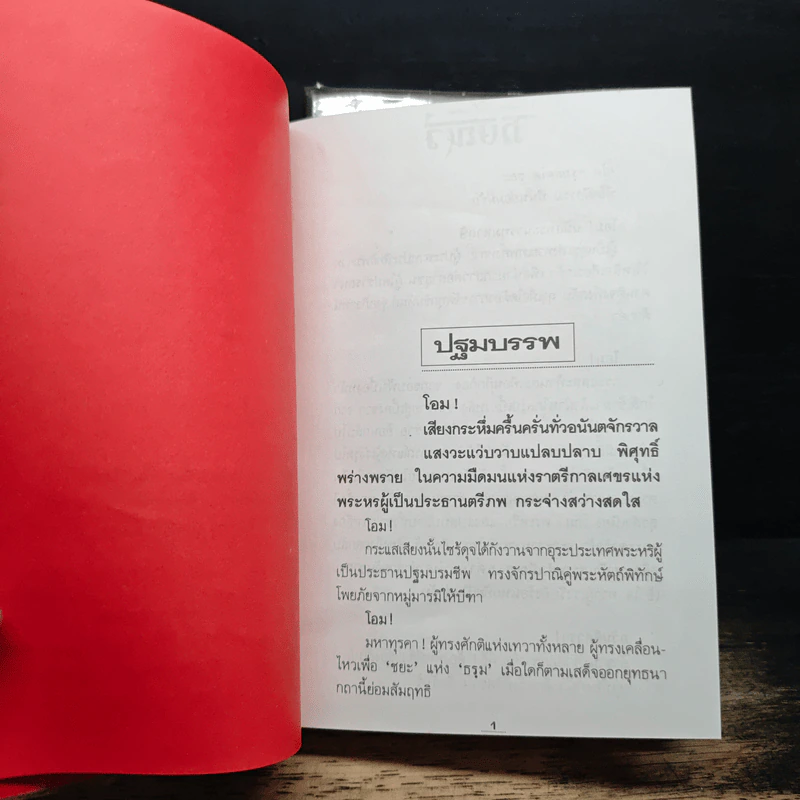 ปฐมบรรพ
โอม !
เสียงกระหึ่มครื้นครั่นทั่วอนันตจักรวาล
แสงวะแว่บวาบแปลบปลาบ พิศุทธิ์
พร่างพราย ในความมืดมนแห่งราตรีกาลเศขรแห่ง
พระหรผู้เป็นประธานตรีภพ กระจ่างสว่างสดใส
โอม !
กระแสเสียงนั้นไซร้ดุจได้กังวานจากอุระประเทศพระหริผู้
เป็นประธานปฐมบรมชีพ ทรงจักรปาณิคู่พระหัตถ์พิทักษ์
โพยภัยจากหมู่มารมิให้บีฑา
โอม !
มหาทุรคา ! ผู้ทรงศักติแห่งเทวาทั้งหลาย ผู้ทรงเคลื่อน-
ไหวเพื่อ 'ชยะ' แห่ง 'ธรฺม' เมื่อใดก็ตามเสด็จออกยุทธนา
กถานี้ย่อมสัมฤทธิ
1